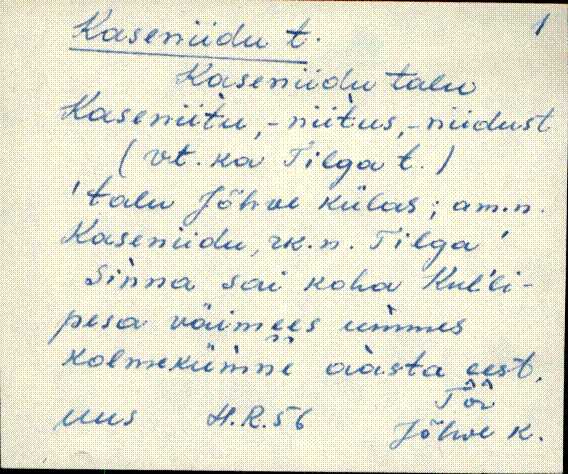 Kaseniidu t.
1
Kaseniidu talu
Kaseniìtu, -niìtus, -niidust
(vt. ka Tilga t.)
'talu Jõhve külas; am.n.
Kaseniidu, rk.n. Tilga'
Siǹna sai koha Kul'li-
pesa väimees um̀mes
kolmeküm̀ne aàsta eest.
Tõr
uus H.R.56 Jõhve k.